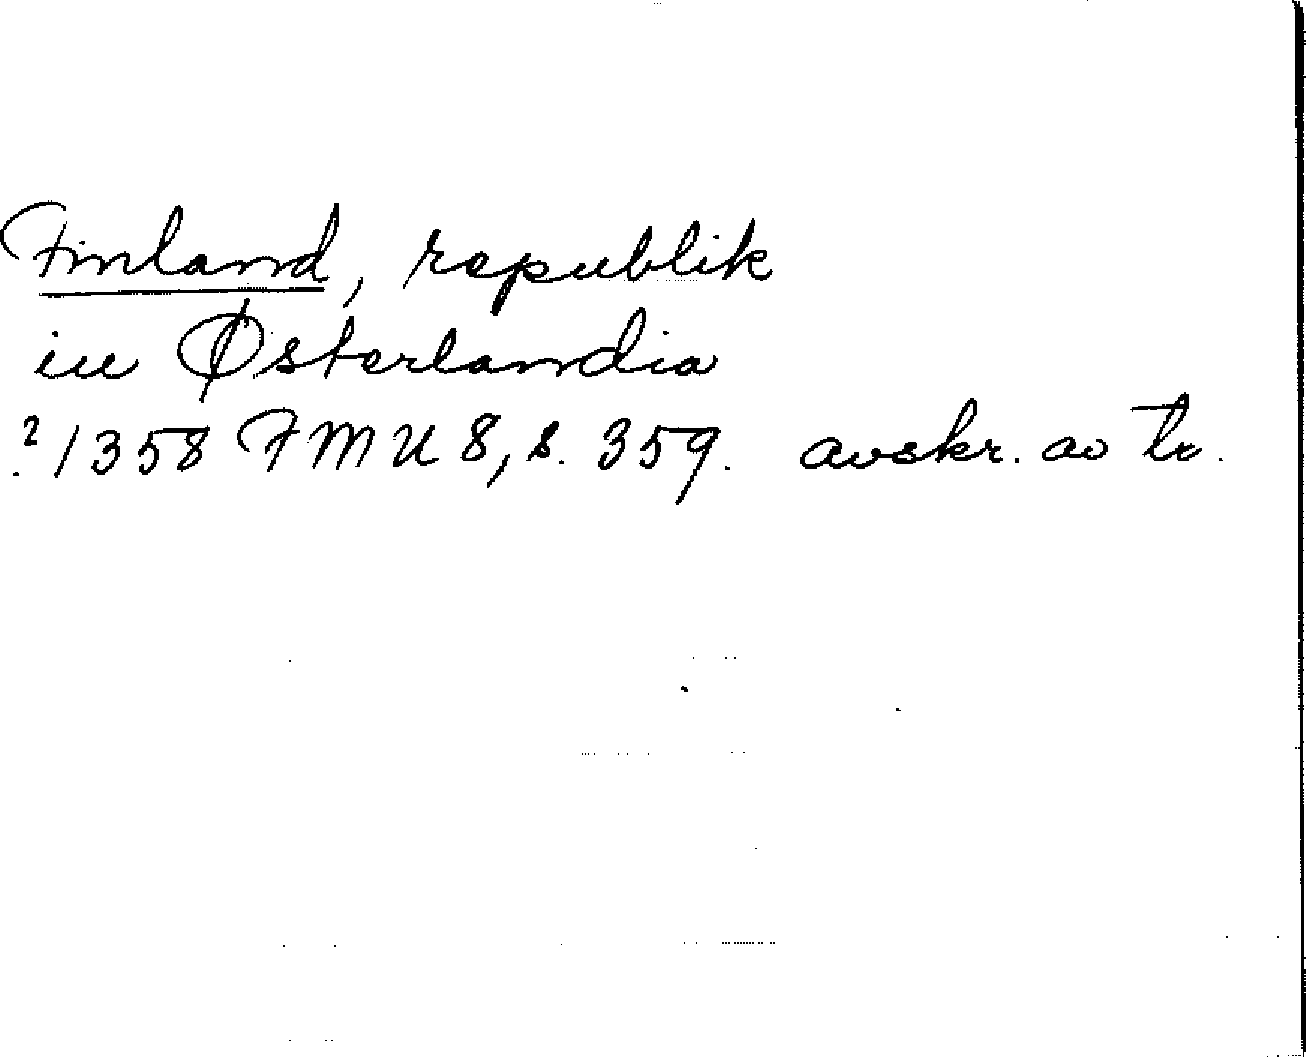 Finland, republik
in Østerlandia
? 1358 FMU 8, s. 359. avskr. av tr.